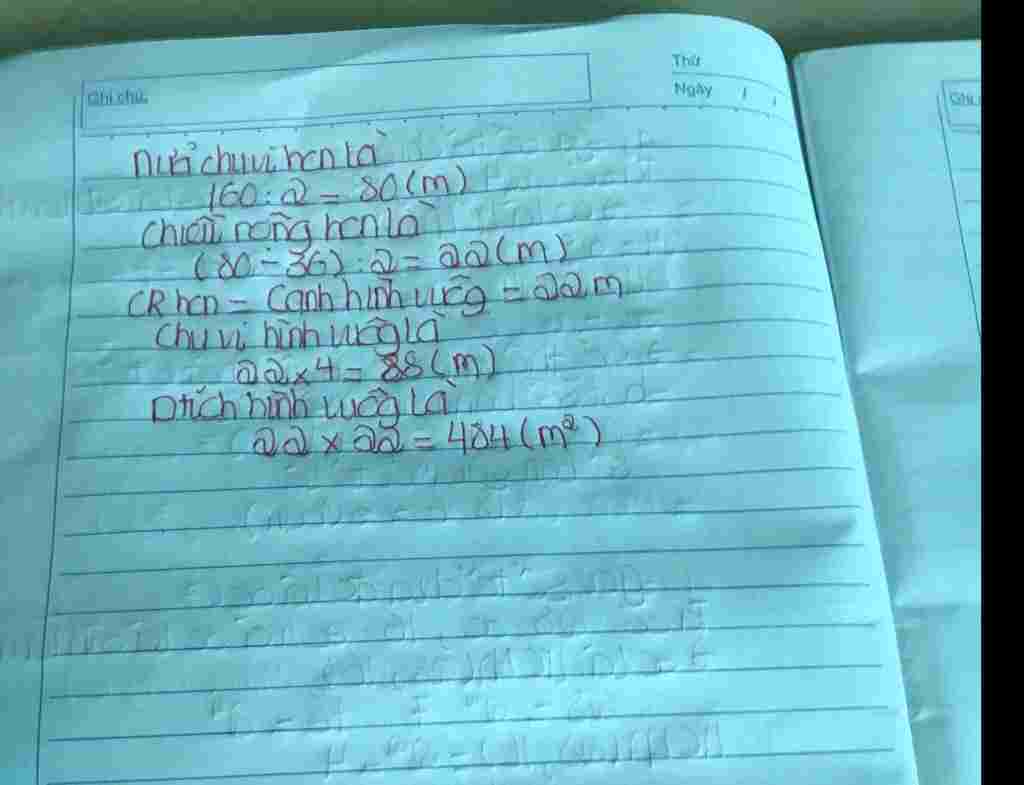 Ghi chú:
Thứ
Ngày / /
Ghi
Nửa chu vi hcn là
160 : 2 = 80 (m)
Chiều rộng hcn là
(80 - 36) : 2 = 22 (m)
CR hcn = Cạnh hình vuôg = 22 m
Chu vi hình vuôg Là
22 x 4 = 88 (m)
Dtích hình vuôg Là
22 x 22 = 484 (m²)